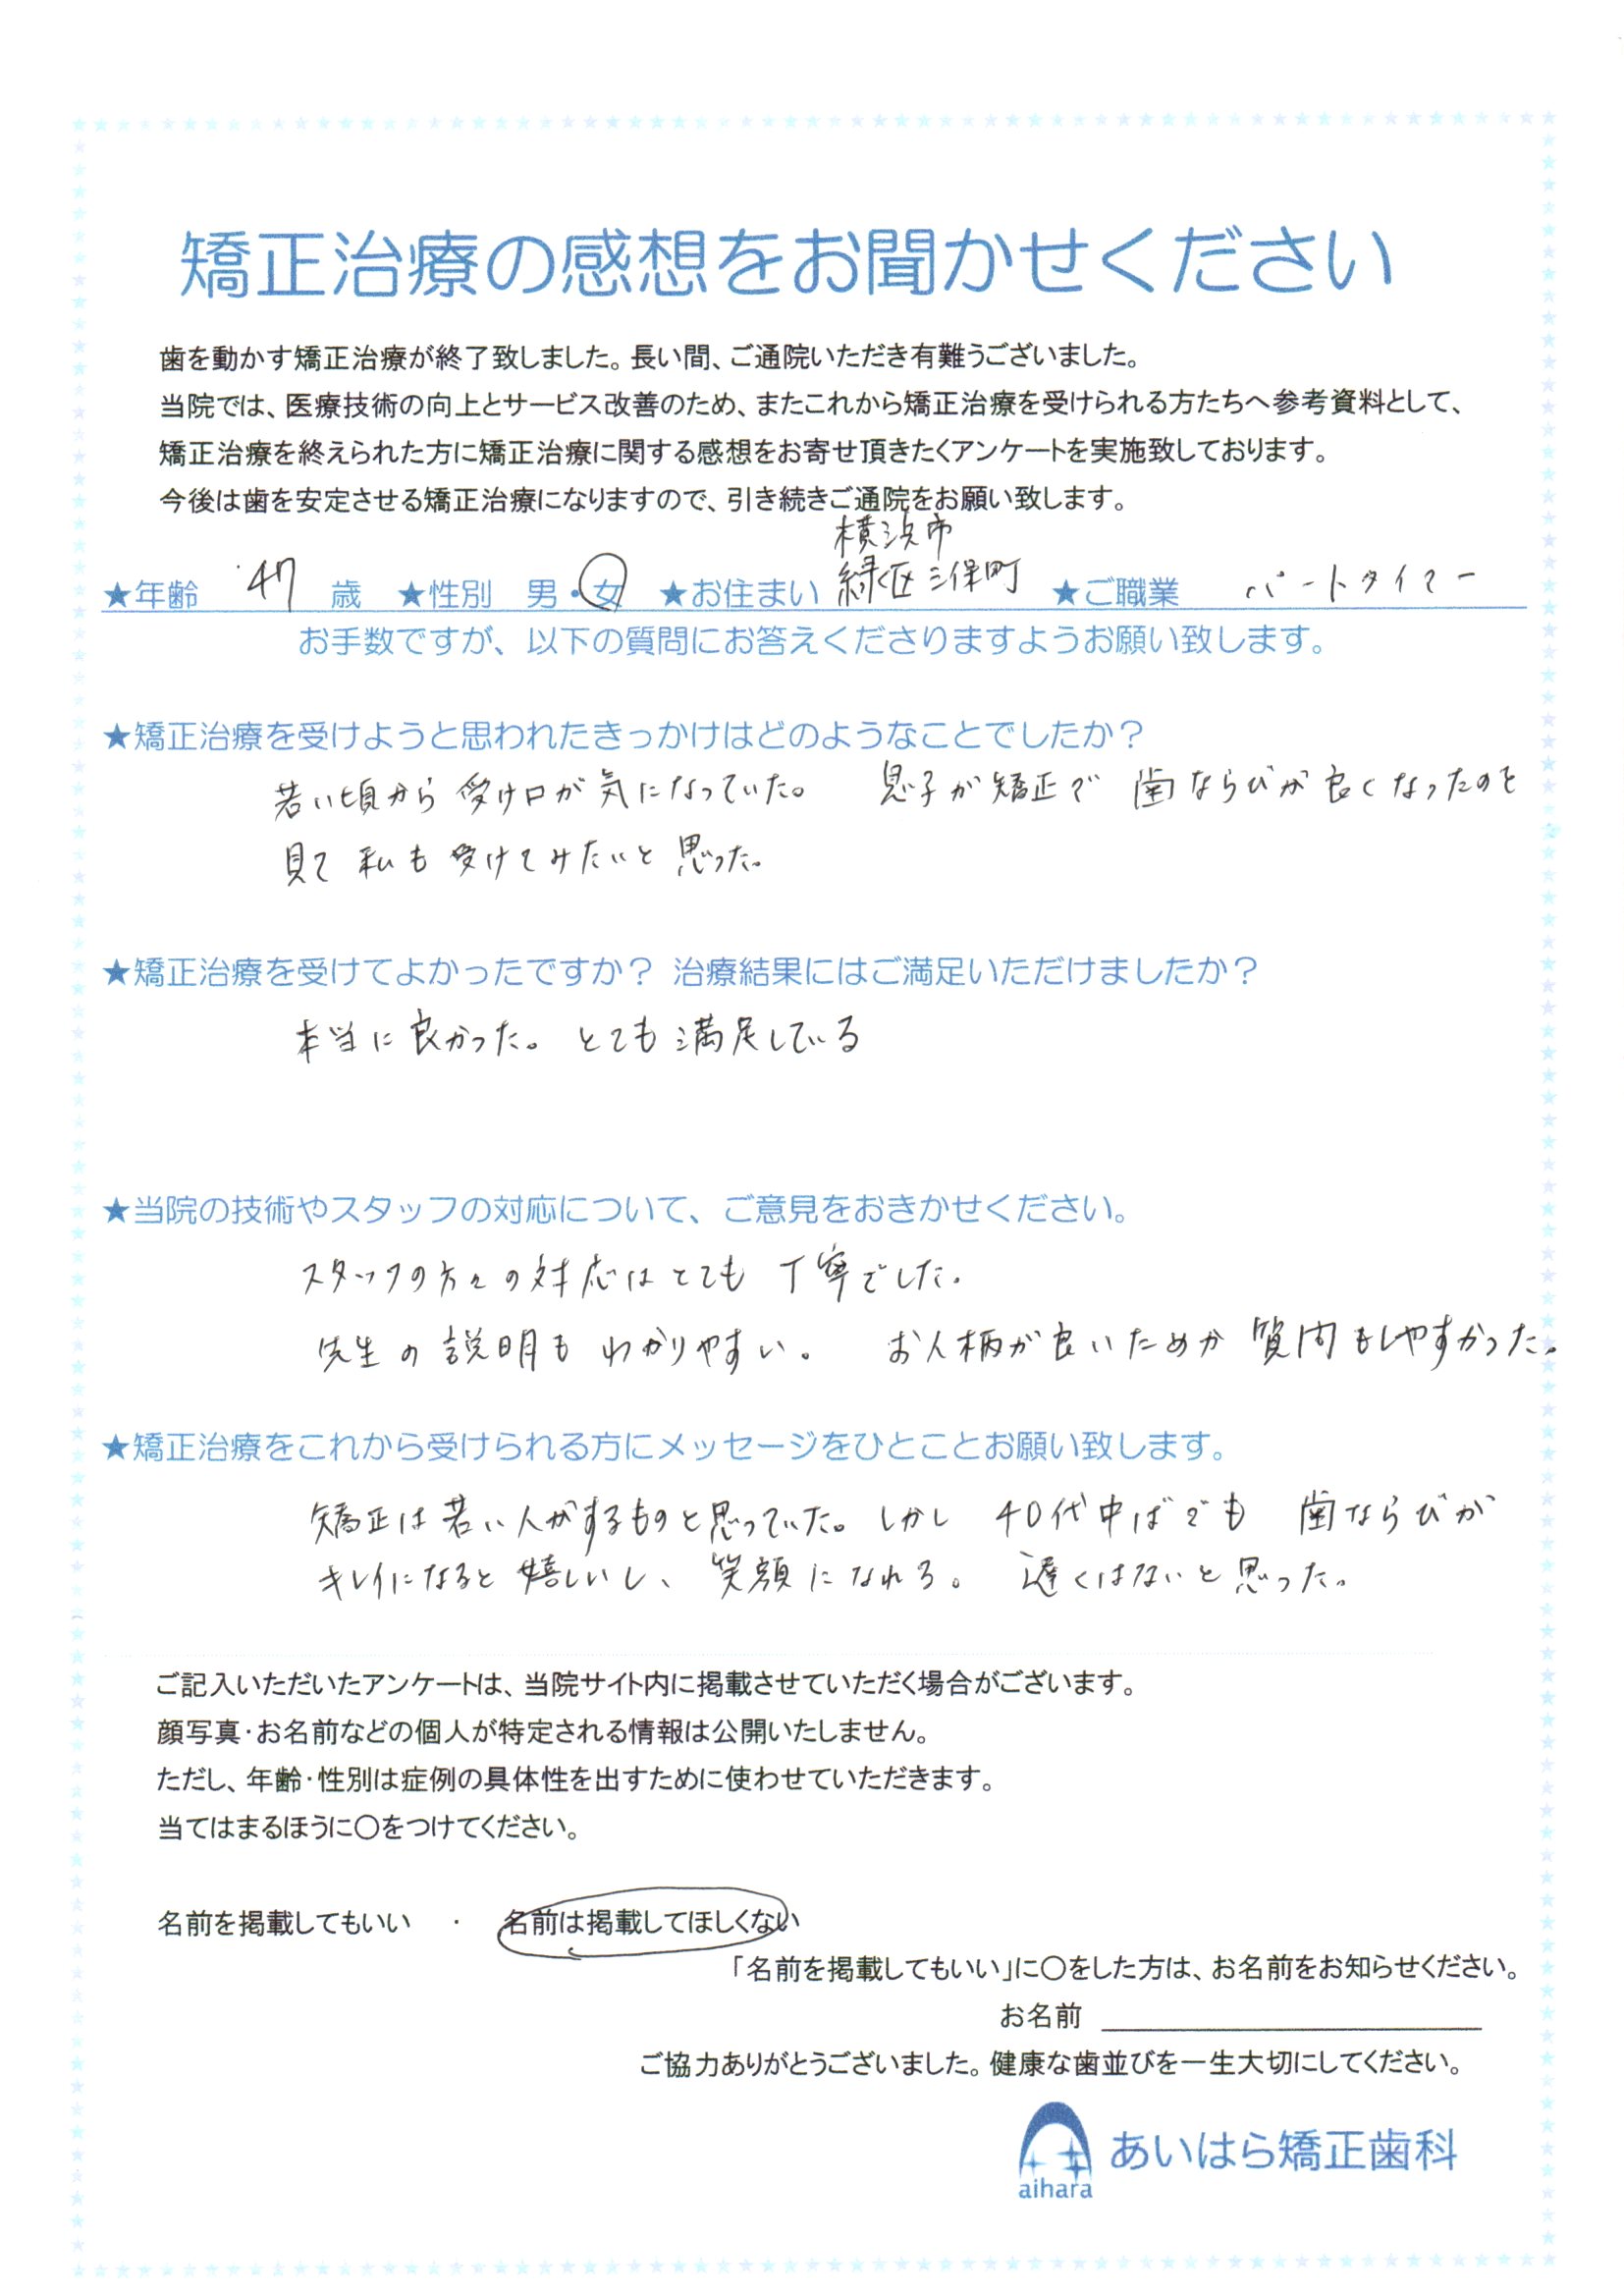 矯正治療の感想をお聞かせください
歯を動かす矯正治療が終了致しました。長い間、ご通院いただき有難うございました。
当院では、医療技術の向上とサービス改善のため、またこれから矯正治療を受けられる方たちへ参考資料として、
矯正治療を終えられた方に矯正治療に関する感想をお寄せ頂きたくアンケートを実施致しております。
今後は歯を安定させる矯正治療になりますので、引き続きご通院をお願い致します。
横浜市
★年齢 47 歳 ★性別 男・女 ★お住まい 緑区三保町 ★ご職業 パートタイマー
お手数ですが、以下の質問にお答えくださりますようお願い致します。
★矯正治療を受けようと思われたきっかけはどのようなことでしたか？
若い頃から受け口が気になっていた。 息子が矯正で歯ならびが良くなったのを
見て私も受けてみたいと思った。
★矯正治療を受けてよかったですか？ 治療結果にはご満足いただけましたか？
本当に良かった。とても満足している
★当院の技術やスタッフの対応について、ご意見をおきかせください。
スタッフの方々の対応はとても丁寧でした。
先生の説明もわかりやすい。 お人柄が良いためか質問もしやすかった。
★矯正治療をこれから受けられる方にメッセージをひとことお願い致します。
矯正は若い人がするものと思っていた。しかし40代中ばでも歯ならびが
キレイになると嬉しいし、笑顔になれる。 遅くはないと思った。
ご記入いただいたアンケートは、当院サイト内に掲載させていただく場合がございます。
顔写真・お名前などの個人が特定される情報は公開いたしません。
ただし、年齢・性別は症例の具体性を出すために使わせていただきます。
当てはまるほうに○をつけてください。
名前を掲載してもいい ・ 名前は掲載してほしくない
「名前を掲載してもいい」に○をした方は、お名前をお知らせください。
お名前
ご協力ありがとうございました。健康な歯並びを一生大切にしてください。
あいはら矯正歯科
aihara